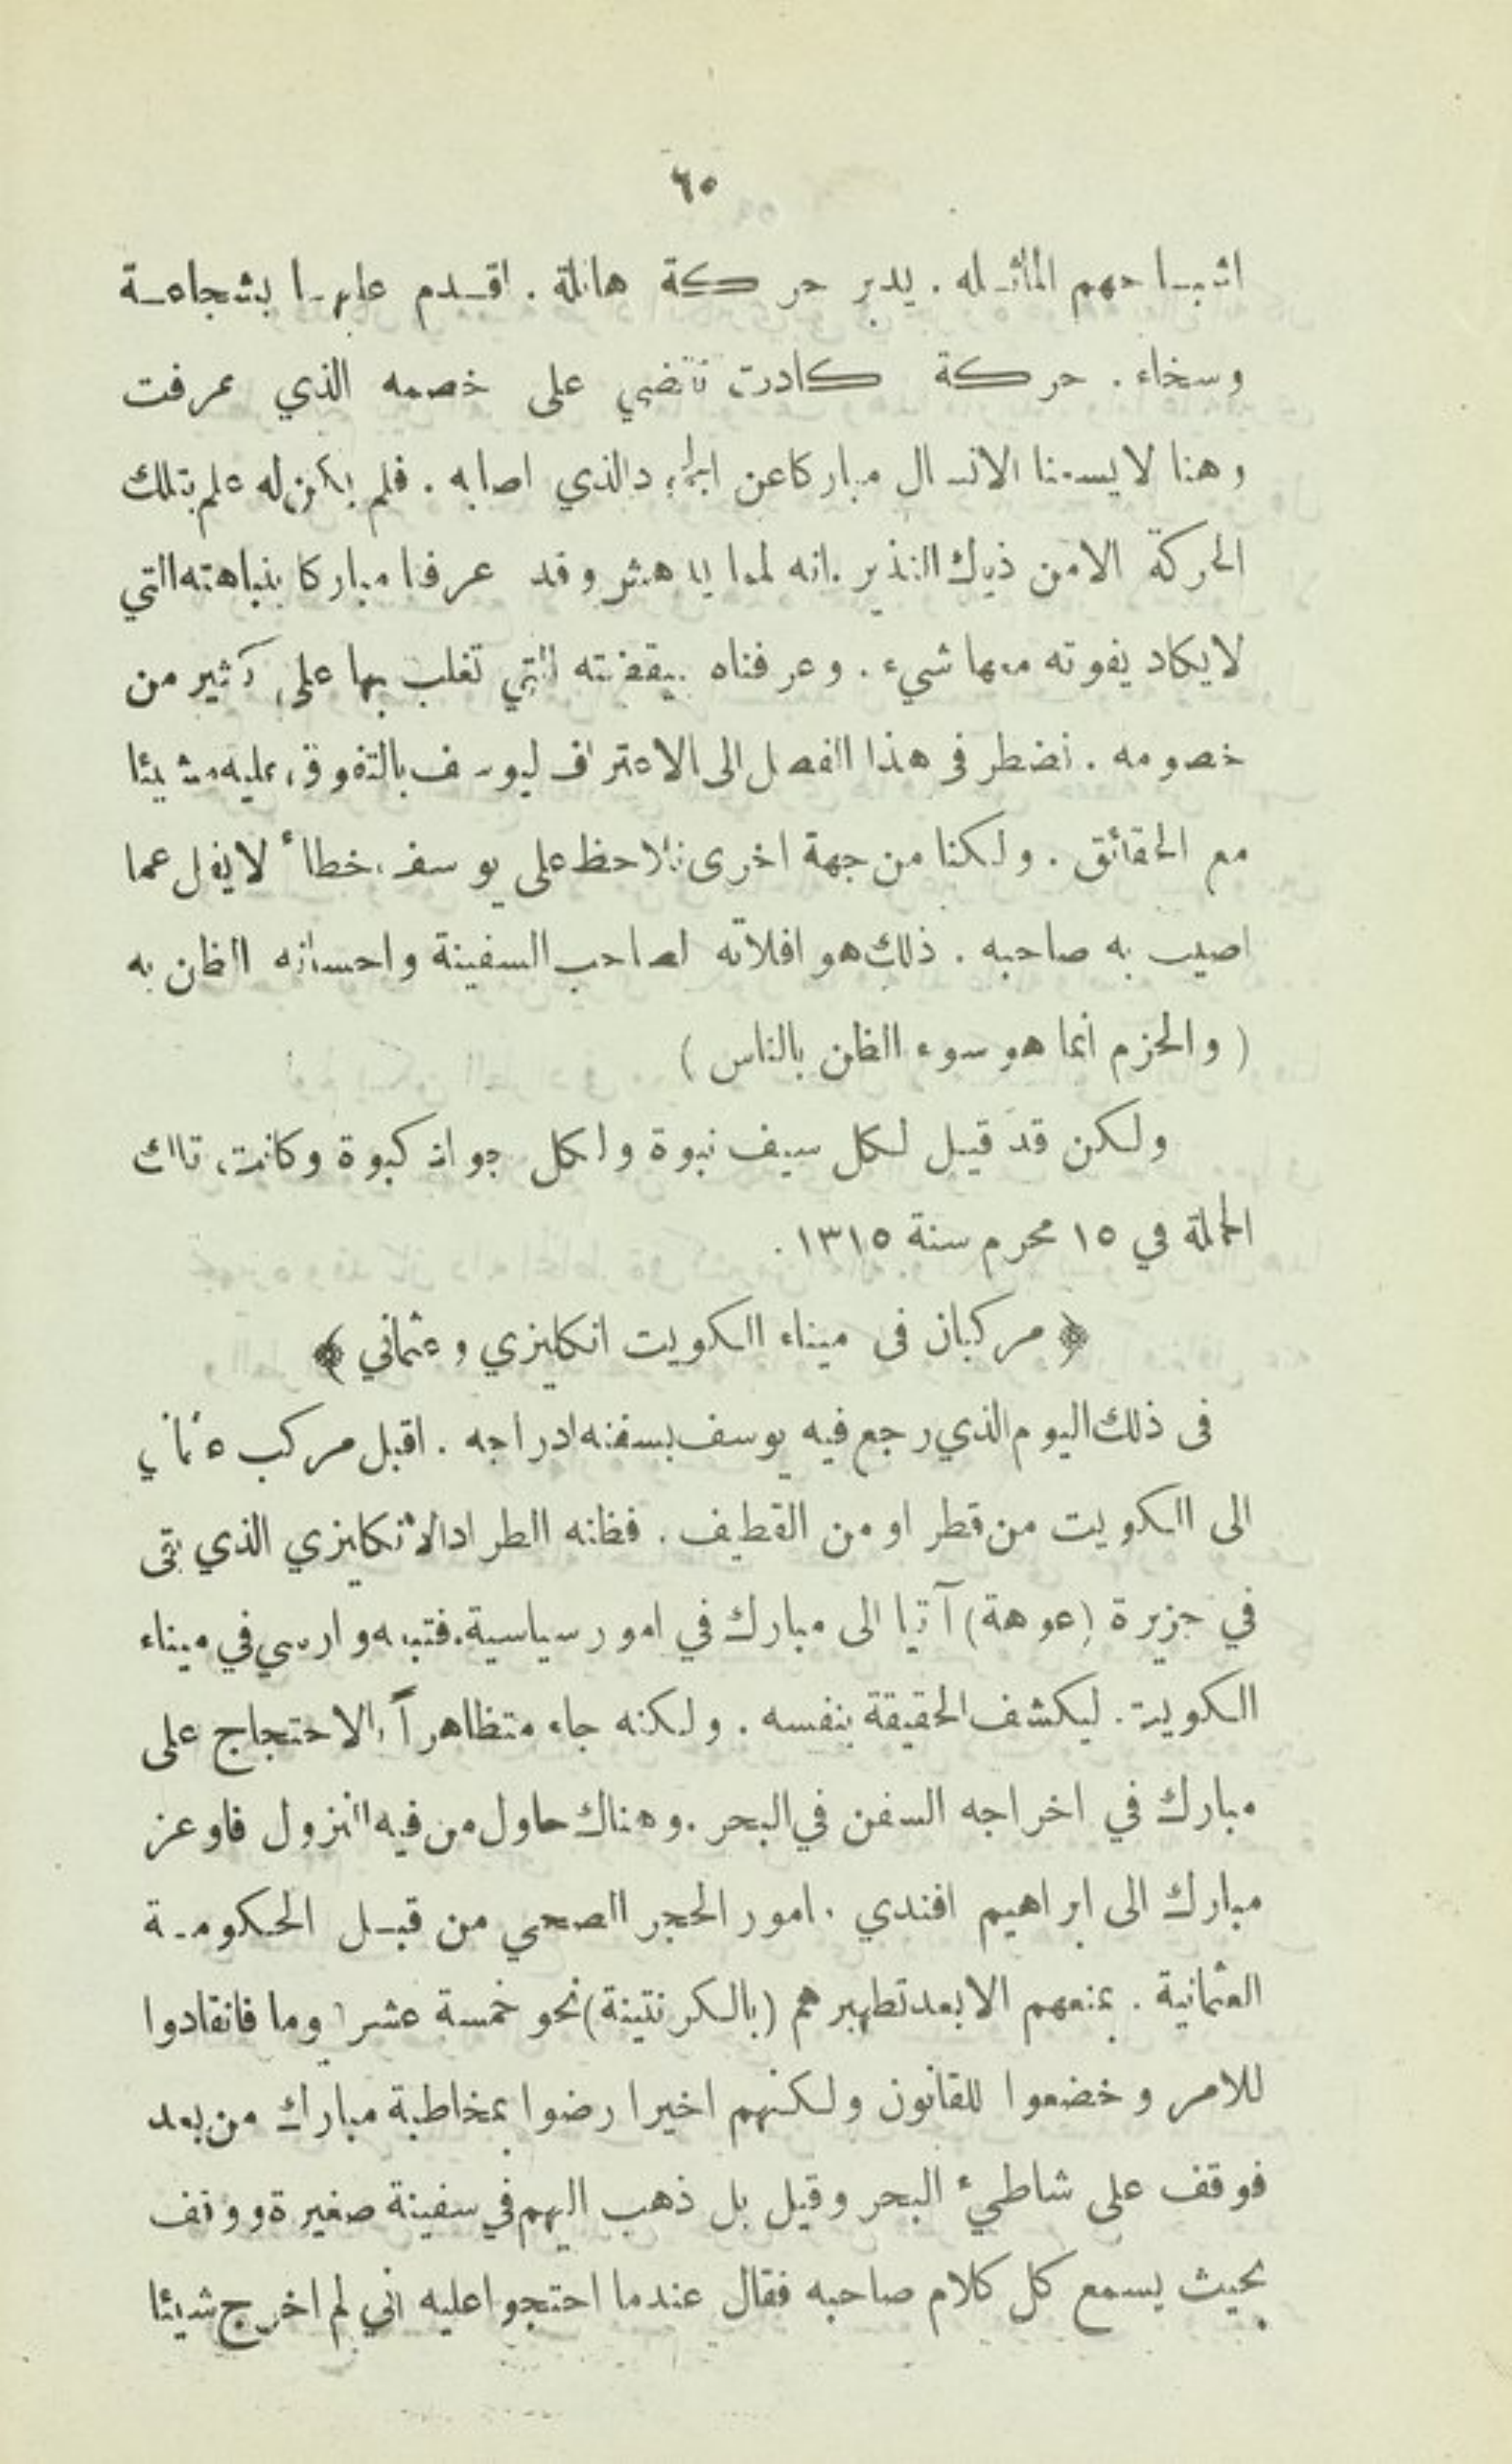 ٦٥
اشباحهم الماثلة . يدبر حركة هائلة . اقدم عليها بشجاعة
وسخاء . حركة كادت تقضي على خصمه الذي عرفت
وهنا لا يسعنا الا نسأل مباركا عن الذي اصابه . فلم يكن له علم بتلك
الحركة الا من ذيك النذير . انه لمما يدهش وقد عرفنا مباركا بنباهته التي
لا يكاد يفوته معها شيء . وعرفناه بيقظته التي تغلب بها على كثير من
خصومه . نضطر فى هذا الفصل الى الاعتراف ليوسف بالتفوق عليه مشيئا
مع الحقائق . ولكنا من جهة اخرى نلاحظ على يوسف خطأ لا يقل عما
اصيب به صاحبه . ذلك هو افلاته لصاحب السفينة واحسانه الظن به
( والحزم انما هو سوء الظن بالناس )
ولكن قد قيل لكل سيف نبوة ولكل جواد كبوة وكانت تلك
الحملة في ١٥ محرم سنة ١٣١٥ .
﴿ مركبان فى ميناء الكويت انكليزي وعثماني ﴾
فى ذلك اليوم الذي رجع فيه يوسف بسفنه ادراجه . اقبل مركب عثماني
الى الكويت من قطر او من القطيف . فظنه الطراد الانكليزي الذي بقى
في جزيرة (عوهة) آتيا الى مبارك في امور سياسية . فتبعه وارسى في ميناء
الكويت . ليكشف الحقيقة بنفسه . ولكنه جاء متظاهراً بالاحتجاج على
مبارك في اخراجه السفن في البحر . وهناك حاول من فيه النزول فاوعز
مبارك الى ابراهيم افندي مأمور الحجر الصحي من قبل الحكومة
العثمانية . بمنعهم الا بعد تطهيرهم (بالكرنتينة) نحو خمسة عشر يوما فانقادوا
للامر وخضعوا للقانون ولكنهم اخيرا رضوا بمخاطبة مبارك من بعد
فوقف على شاطيء البحر وقيل بل ذهب اليهم في سفينة صغيرة ووقف
بحيث يسمع كل كلام صاحبه فقال عندما احتجوا عليه اني لم اخرج شيئا